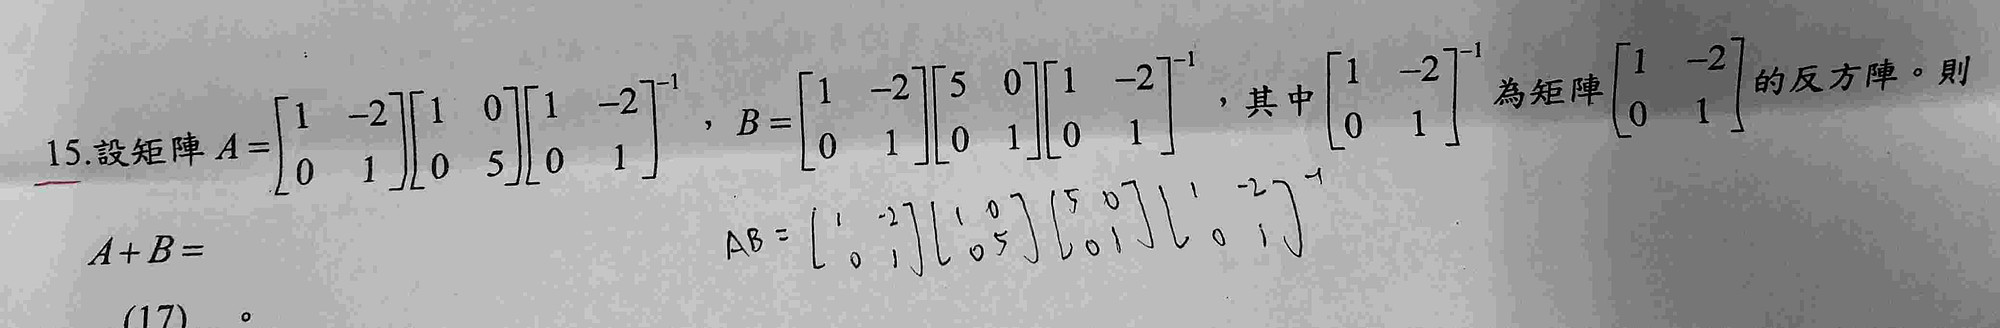 15.設矩陣 A=[1 -2; 0 1][1 0; 0 5][1 -2; 0 1]^-1 , B=[1 -2; 0 1][5 0; 0 1][1 -2; 0 1]^-1 , 其中[1 -2; 0 1]^-1 為矩陣[1 -2; 0 1]的反方陣。則
AB = [1 -2; 0 1][1 0; 0 5][5 0; 0 1][1 -2; 0 1]^-1
A+B=
(17) 。